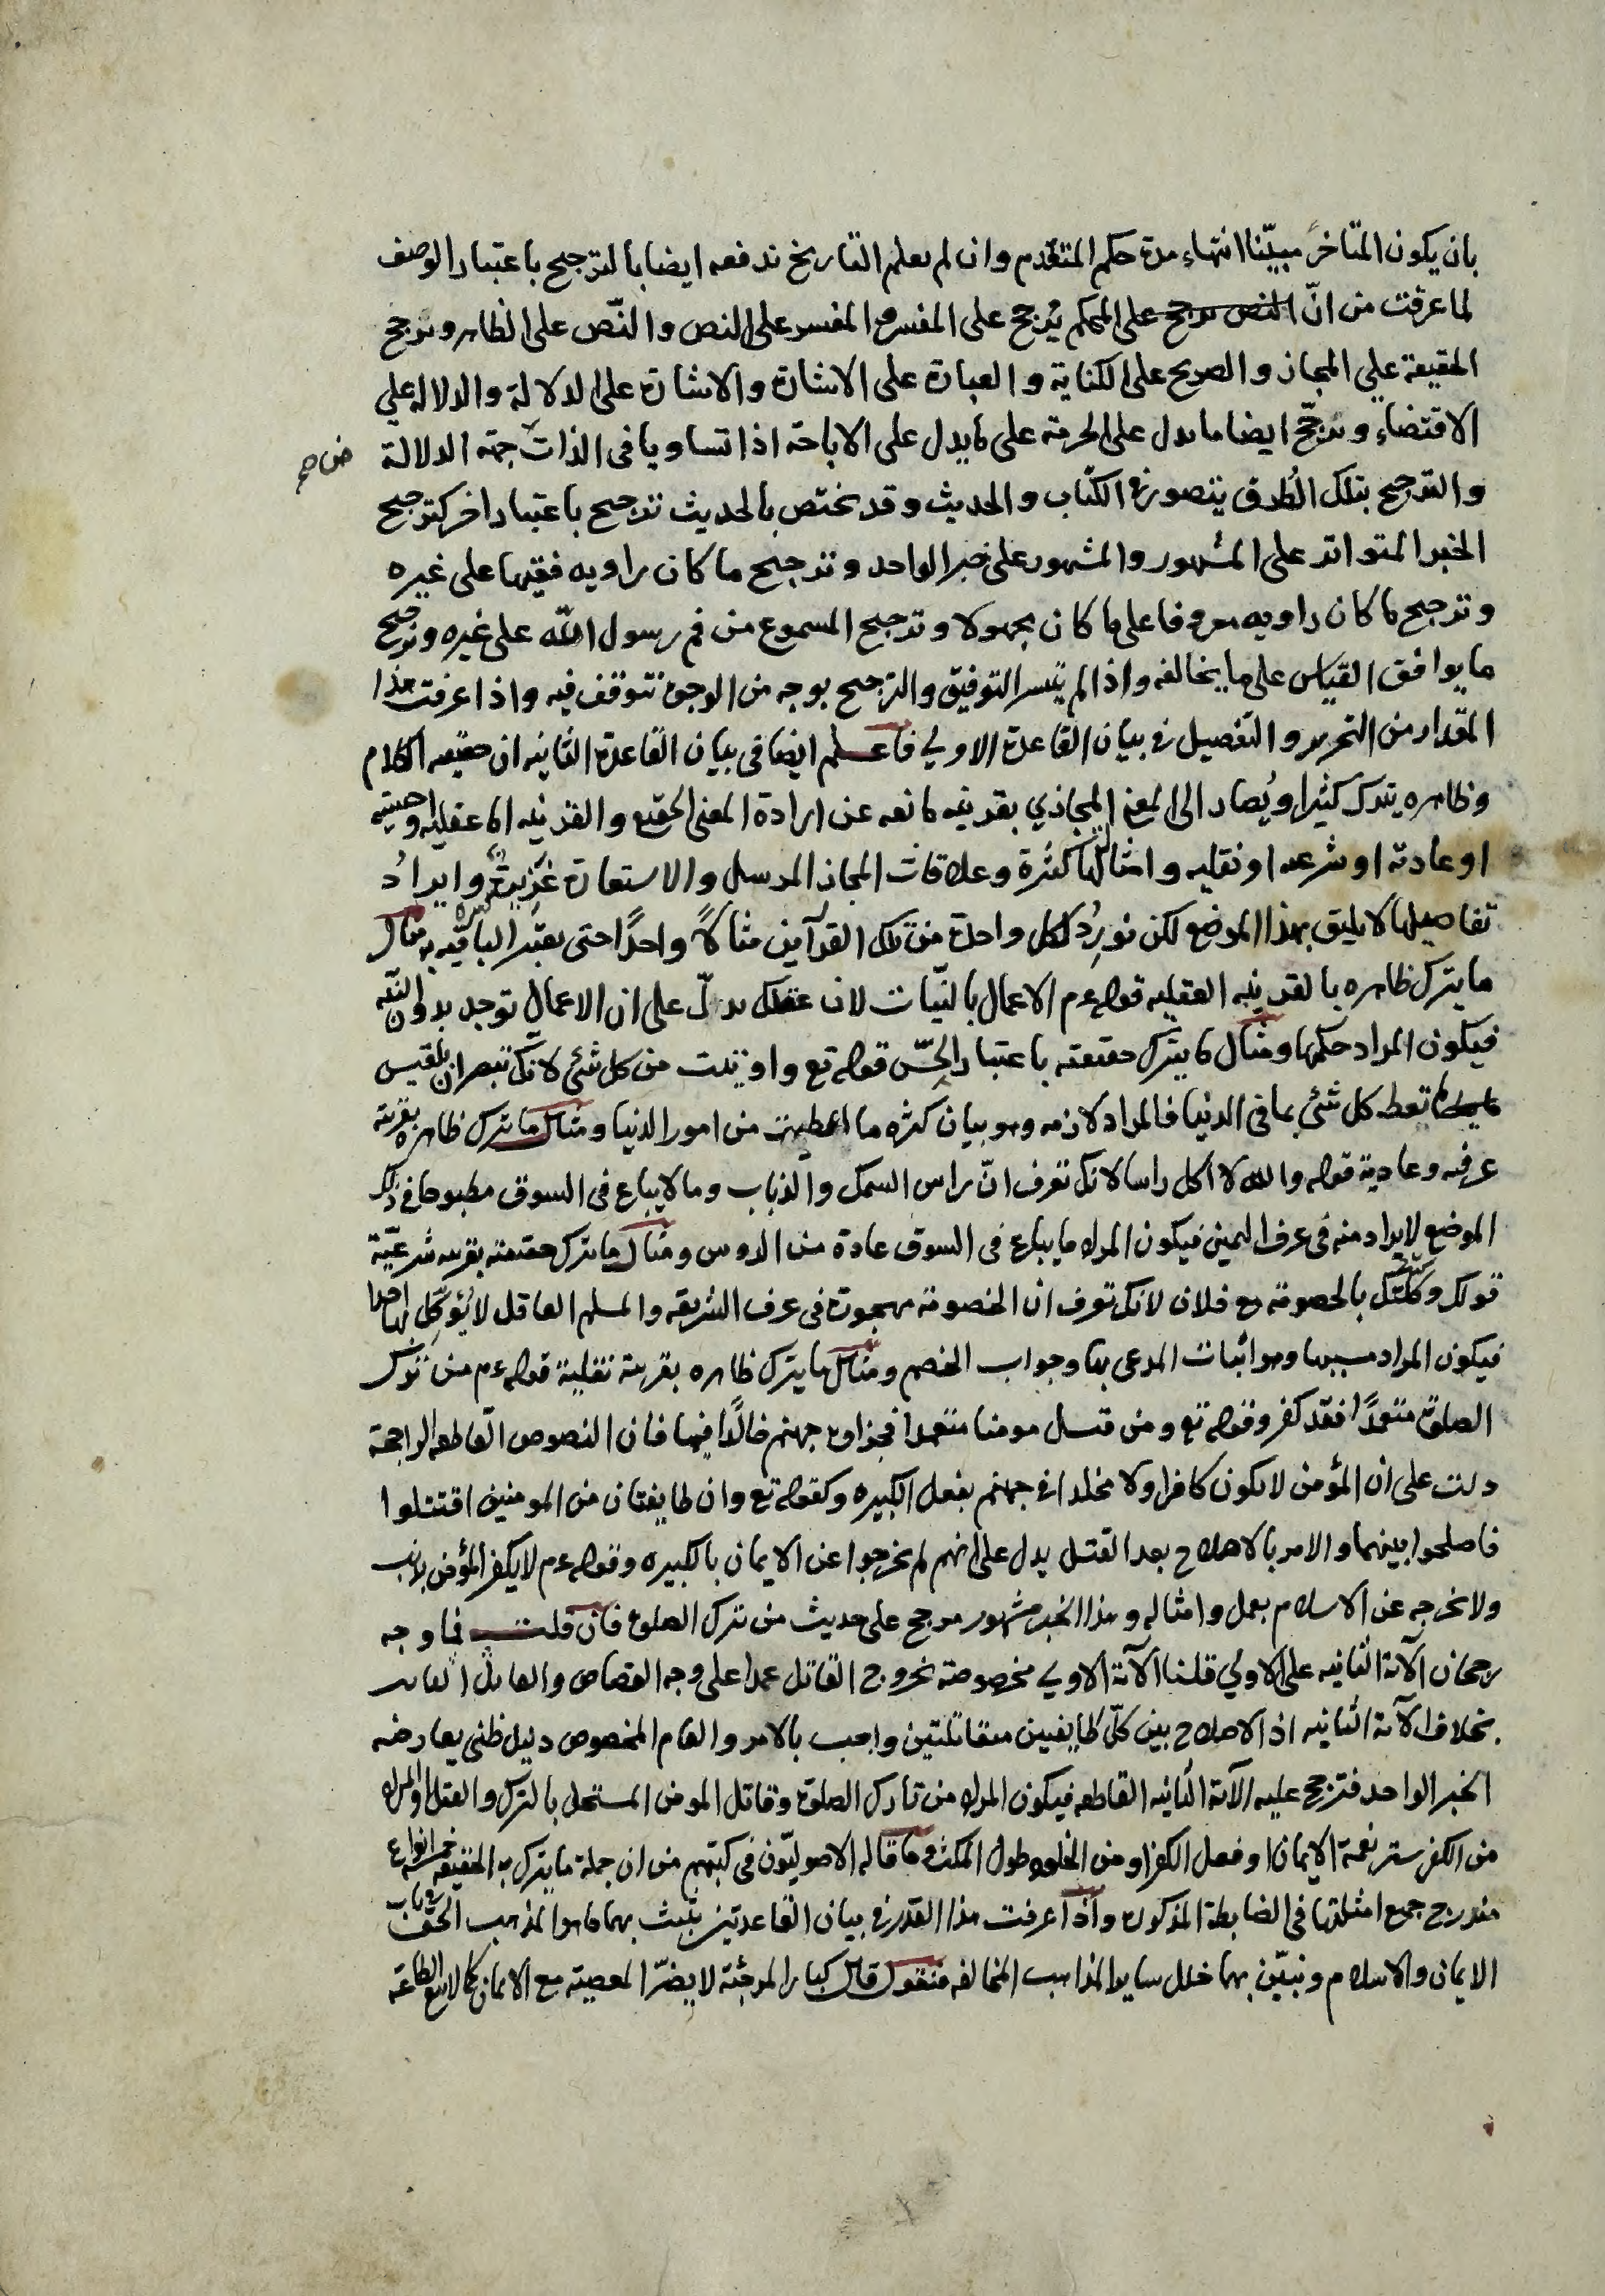 بان يكون المتاخر مبيّنا انتهاء مدة حكم المتقدم وان لم يعلم التاريخ ندفعه ايضا بالترجيح باعتبار الوصف
لما عرفت من انّ النص يرجح على المحكم يُرجح على المفسر والمفسر على النص والنّص على الظاهر ونرجح
الحقيقة علي المجاز والصريح على الكناية والعبارة على الاشارة والاشارة على الدلالة والدلالة علي
الاقتضاء ونرجّح ايضا ما يدل على الحرمة على ما يدل على الاباحة اذا تساويا في الذات جهة الدلالة
والترجيح بتلك الطُرق يتصور في الكتاب والحديث وقد يختص بالحديث ترجيح باعتبار اخر كترجيح
الخبر المتواتر على المشهور والمشهور على خبر الواحد وترجيح ما كان راويه فقيها على غيره
وترجيح ما كان راويه معروفا على ما كان مجهولا وترجيح المسموع من فم رسول اللّه على غيره وترجيح
ما يوافق القياس على ما يخالفه واذا لم يتيسر التوفيق والترجيح بوجه من الوجوه نتوقف فيه واذا عرفت هذا
المقدار من التحرير والتفصيل في بيان القاعدة الاولي فاعلم ايضا في بيان القاعدة الثانيه ان حقيقه الكلام
وظاهره يترك كثيرا ويُصار الى المعنى المجازي بقرينه مانعه عن ارادة المعنى الحقيقي والقرينه اما عقليه او حسيّه
او عادته او شرعيه او نقليه وامثالها كثيرة وعلاقات المجاز المرسل والاستعارة غزيرة وايرادُ
تفاصيلها لا يليق بهذا الموضع لكن نورِدُ لكل واحدة من تلك القرآين مثالاً واحدًا حتى يعتبر الباقيه به مثال
ما يترك ظاهره بالقرينه العقليه قوله عم الاعمال بالنيّات لان عقلك يدلّ على ان الاعمال توجد بدون النّيه
فيكون المراد حكمها ومثال ما يترك حقيقته باعتبار الحسّ قوله تع واوتيت من كل شئ لانك تبصر ان بلقيس
تعط كل شئ بما في الدنيا فالمراد لازمه وهو بيان كثره ما اعطيت من امور الدنيا ومثال ما يترك ظاهره بقرينة
عرفيه وعادية قوله والله لا آكل راسا لانك تعرف انّ راس السمك والذباب وما لا يباع في السوق مطبوخا في ذلك
الموضع لا يراد منه في عرف اليمين فيكون المراد ما يباع في السوق عادة من الروس ومثال ما يترك حقيقته بقرينه شرعيّة
قولك وكّلتك بالخصومة مع فلان لانك تعرف ان الخصومة مهجورة في عرف الشريعه والمسلم العاقل لا يُؤكِّل بها احدا
فيكون المراد مسببها وهو اثبات المدعى بها وجواب الخصم ومثال ما يترك ظاهره بقرينة نقلية قوله عم من ترك
الصلوة متعمدًا فقد كفر وقوله تع ومن قتل مومنا متعمدا فجزاوه جهنم خالدًا فيها فان النصوص القاطعه الراجحة
دلت على ان المؤمن لا يكون كافرا ولا مخلدا في جهنم بفعل الكبيره وكقوله تع وان طايفتان من المومنين اقتتلوا
فاصلحوا بينهما والامر بالاصلاح بعد القتل يدل على انهم لم يخرجوا عن الايمان بالكبيره وقوله عم لا يكفر المؤمن بذنب
ولا نخرجه عن الاسلام بعمل وامثاله وهذا الخبر مشهور مرجح على حديث من ترك الصلوة فان قلت فما وجه
رجحان الآية الثانيه على الاولي قلنا الآية الاولي مخصوصة بخروج القاتل عمدا على وجه القصاص والقاتل
بخلاف الآية الثانيه اذ الاصلاح بين كلّ طايفين متقاتلتين واجب بالامر والعام المخصوص دليل ظني يعارضه
الخبر الواحد فترجح عليه الآية الثانيه القاطعه فيكون المراد من تارك الصلوة وقاتل المومن المستحل بالترك والقتل او المراد
من الكفر ستر نعمة الايمان او فعل الكفر او من الخلود طول المكث وما قاله الاصوليّون في كتبهم من ان جملة ما يترك به الحقيقة خمسة انواع
مندرج جميع امثلتها في الضابطة المذكوره واذا عرفت هذا القدر في بيان القاعدتين نثبت بهما ما هو المذهب الحق في باب
الايمان والاسلام ونبيّن بهما خلل ساير المذاهب المخالفه فنقول قال كبار المرجئة لا يضرّ المعصية مع الايمان كما لا ينفع الطاعة